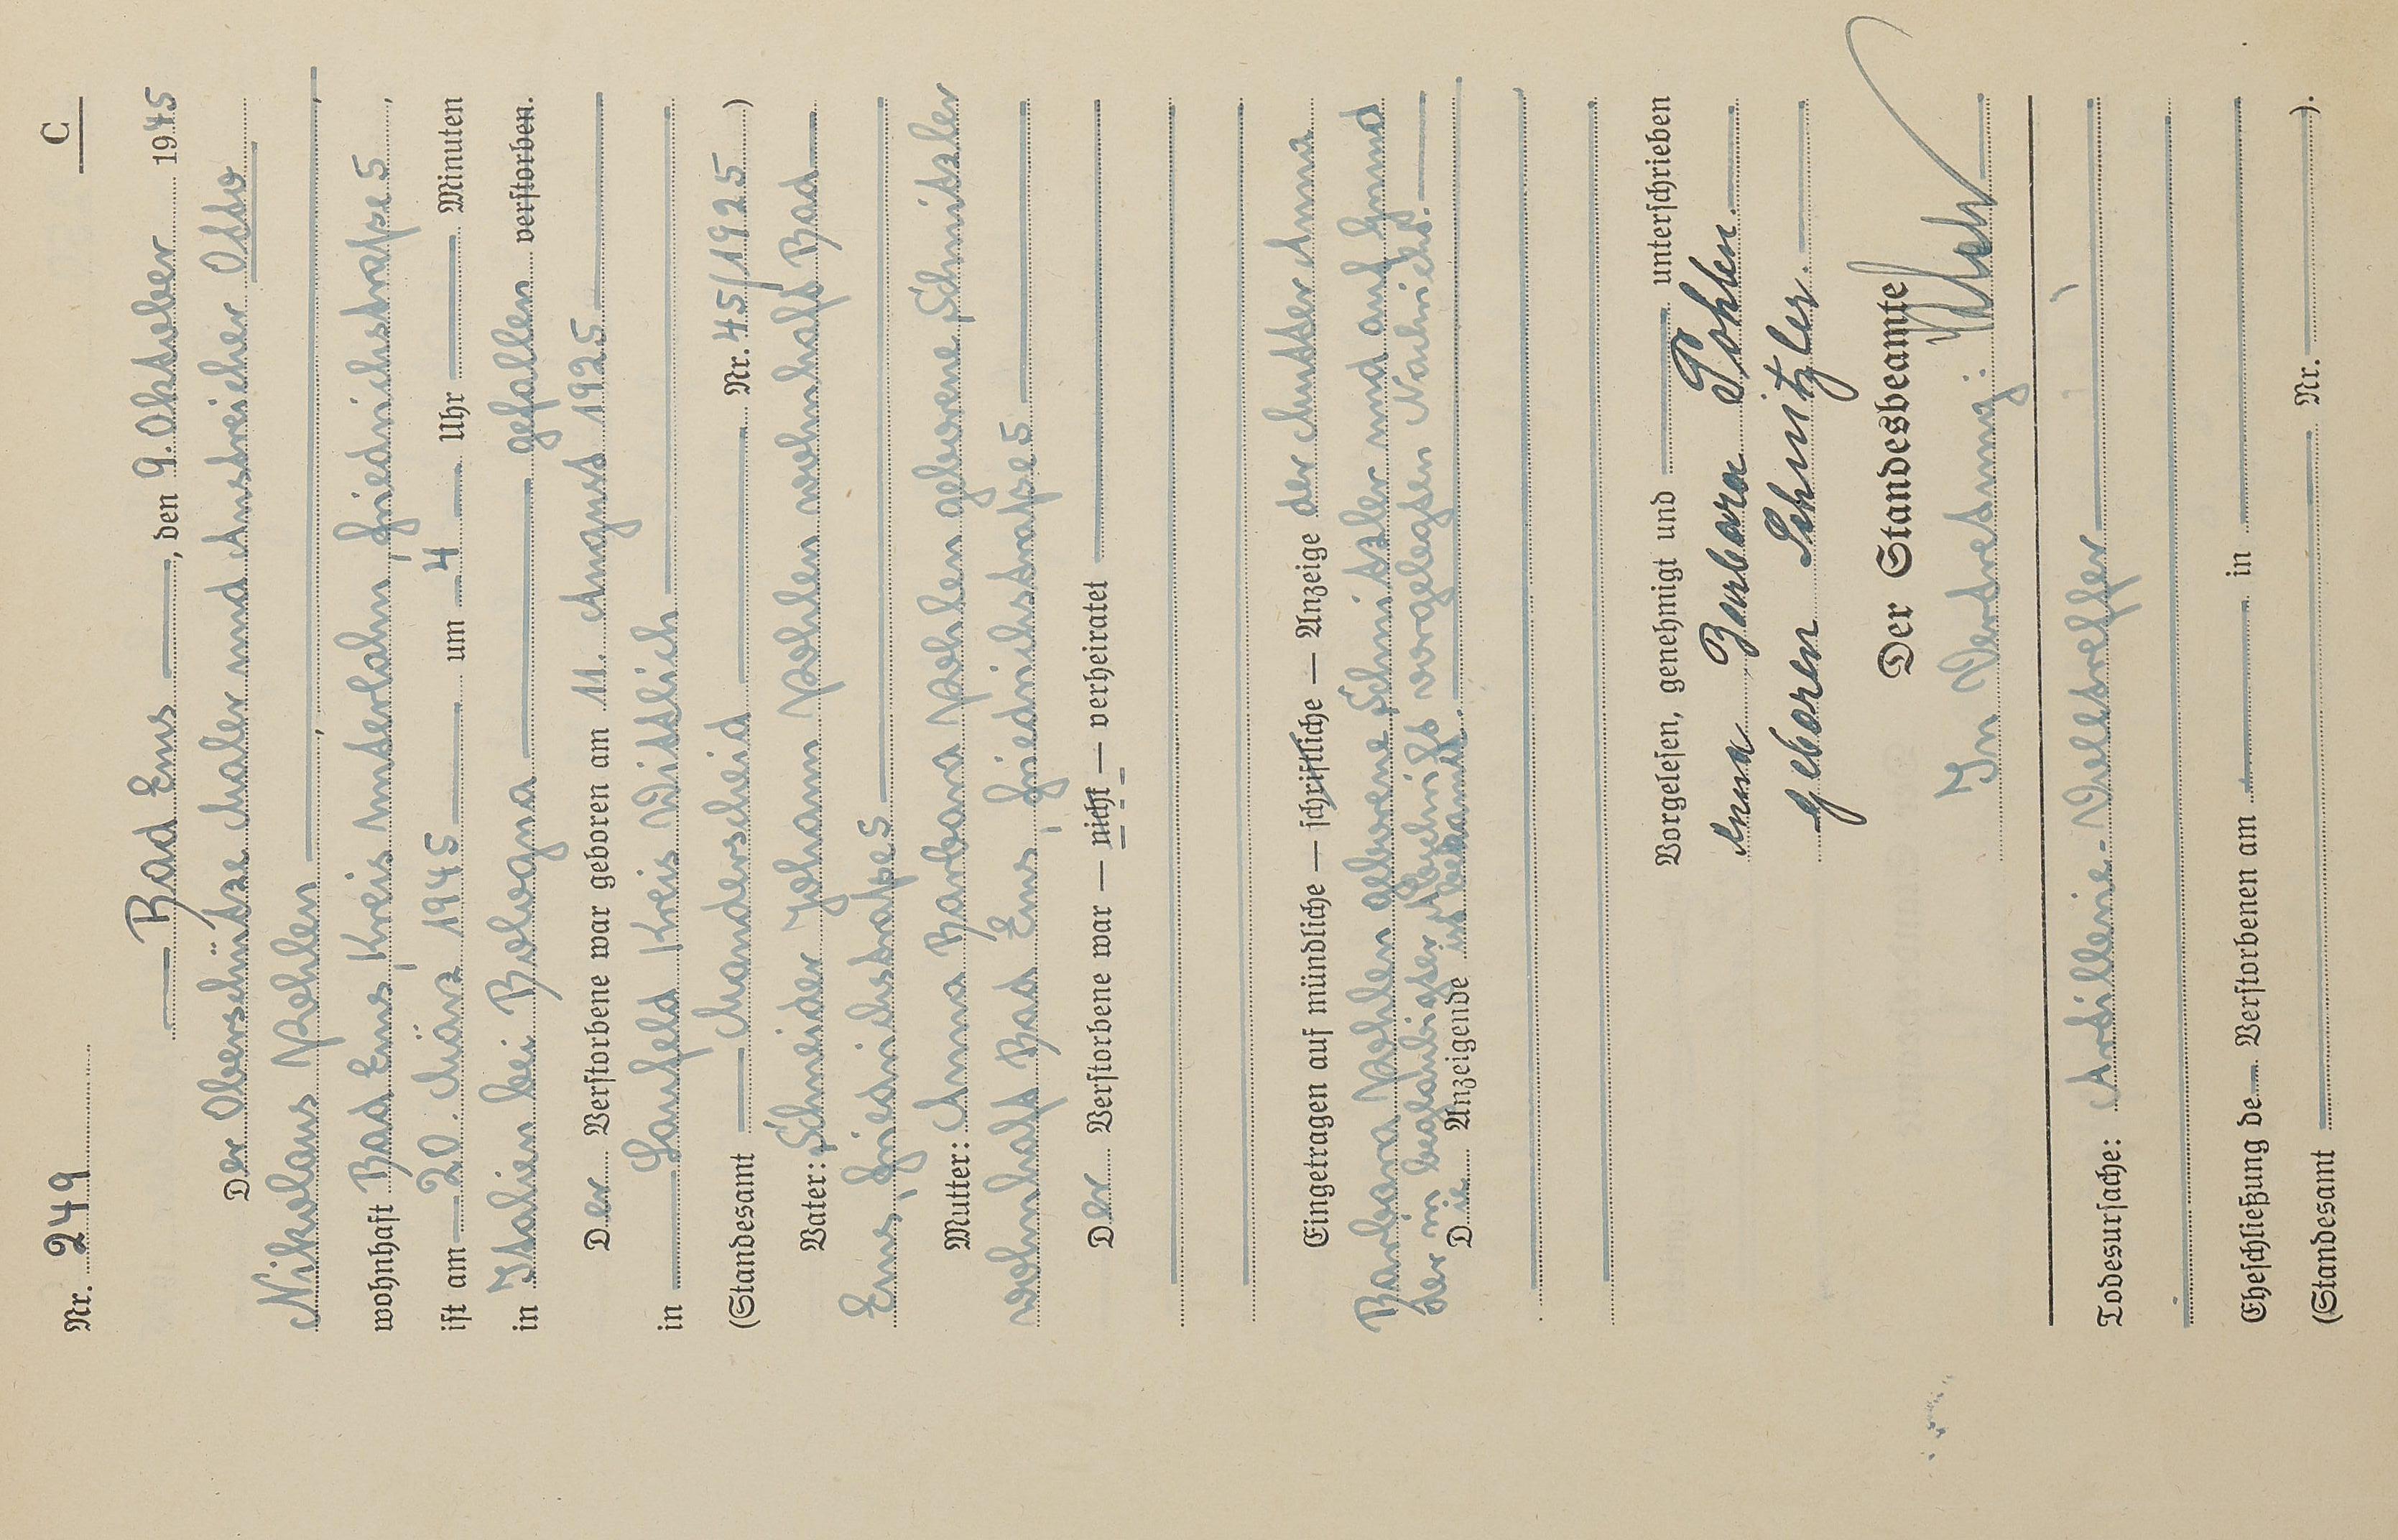 Nr. 249 C
Bad Ems, den 9. Oktober 1945
Der Oberschütze Maler und Anstreicher Otto
Nikolaus Pohlen,
wohnhaft Bad Ems, Kreis Unterlahn, Friedrichstraße 5,
ist am 20. März 1945 um 4 Uhr Minuten
in Italien bei Bologna gefallen verstorben.
Der Verstorbene war geboren am 11. August 1925
in Laufeld Kreis Wittlich
(Standesamt Manderscheid Nr. 45/1925)
Vater: Schneider Johann Pohlen wohnhaft Bad
Ems, Friedrichstraße 5
Mutter: Anna Barbara Pohlen geborene Schnitzler
wohnhaft Bad Ems, Friedrichstraße 5
Der Verstorbene war — nicht — verheiratet
Eingetragen auf mündliche — schriftliche — Anzeige der Mutter Anna
Barbara Pohlen geborene Schnitzler und auf Grund
der in beglaubigter Abschrift vorgelegten Nachricht.
Die Anzeigende ist bekannt.
Vorgelesen, genehmigt und unterschrieben
Anna Barbara Pohlen.
geboren Schnitzler.
Der Standesbeamte
In Vertretung:
Todesursache: Artillerie-Volltreffer
Eheschließung de Verstorbenen am in
(Standesamt Nr. ).